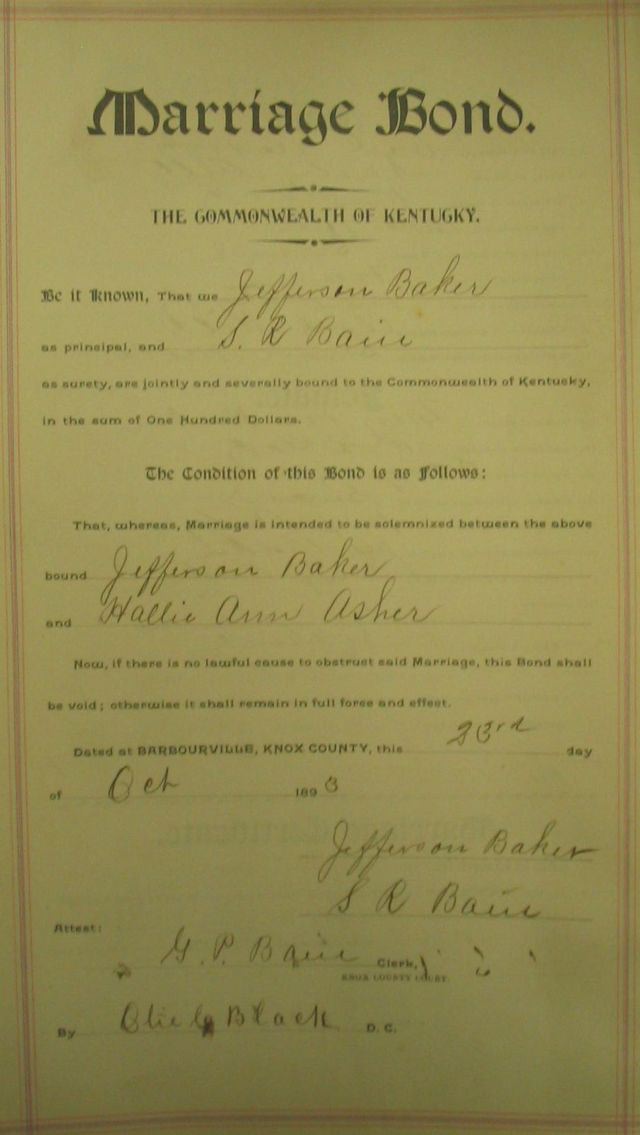 Marriage Bond.
THE COMMONWEALTH OF KENTUCKY.
Be it Known, That we Jefferson Baker
as principal, and S. R Bain
as surety, are jointly and severally bound to the Commonwealth of Kentucky,
in the sum of One Hundred Dollars.
The Condition of this Bond is as Follows:
That, whereas, Marriage is intended to be solemnized between the above
bound Jefferson Baker
and Hallie Ann Asher
Now, if there is no lawful cause to obstruct said Marriage, this Bond shall
be void; otherwise it shall remain in full force and effect.
Dated at BARBOURVILLE, KNOX COUNTY, this 23rd day
of Oct 189
Jefferson Baker
S R Bain
Attest:
G. P. Bain Clerk,
KNOX COUNTY COURT.
By Black D. C.